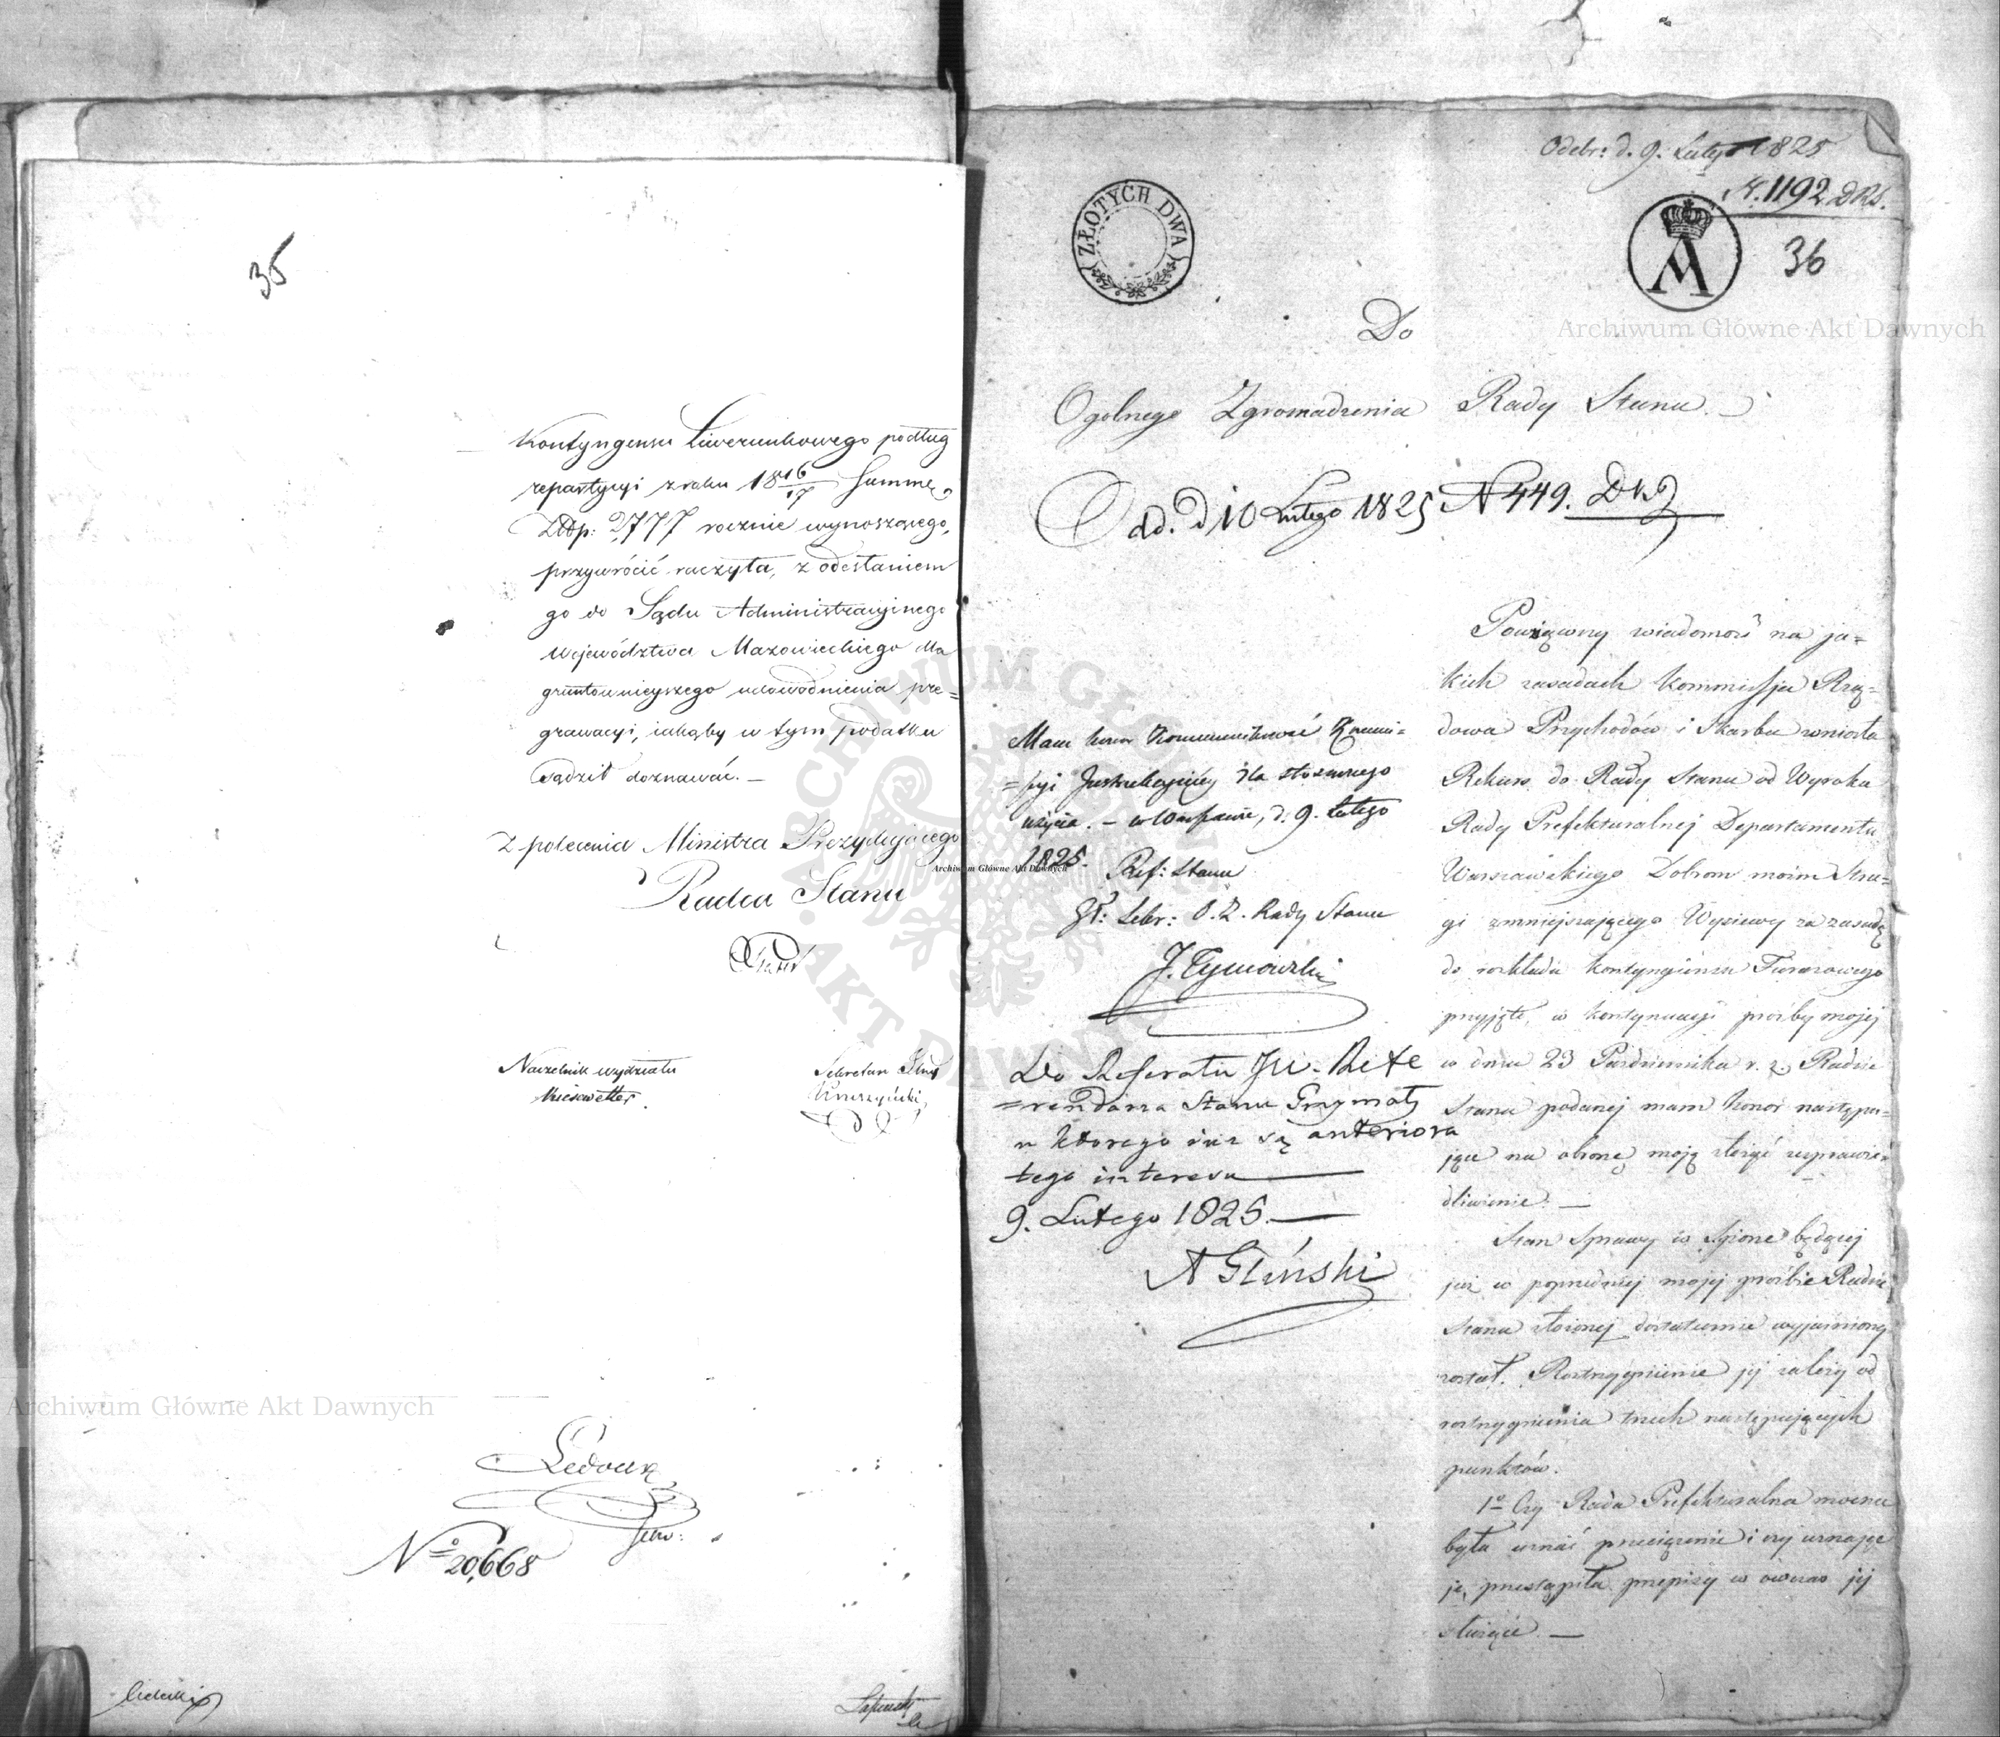 35
Kontyngensu Liwerunkowego podług
repartycyi z roku 18 16/17 Summę
Złłp: 2,777 rocznie wynoszącego,
przywrócić raczyła, z odesłaniem
go do Sądu Administracyjnego
Województwa Mazowieckiego dla
gruntownieyszego udowodnienia pre=
grawacyi, iakąby w tym podatku
sądził doznawać. —
Z polecenia Ministra Prezydującego
Radca Stanu
Naczelnik wydziału
Kiesewetter.
Sekretarz
Ledoux
No 20,668
Odebr: d. 9. Lutego 1825
N. 1192 DRS.
36
ZŁOTYCH DWA
Do
Ogolnego Zgromadzenia Rady Stanu.
Odd. d 10 Lutego 1825 N 449.
Mam honor kommunikować Kommis=
=syi Instrukcyiney dla stosownego
użycia. — w Warszawie, d. 9. Lutego
1825.
Ref: Stanu
Sekr: O. Z. Rady Stanu
J. Tymowski
Do Referatu JW. Refe
=rendarza Stanu Grzymały
u ktorego iuz są anteriora
tego interesu —
9. Lutego 1825. —
A Gliński
Powziąwszy wiadomość na ja=
kich zasadach Kommissja Rzą=
dowa Przychodów i Skarbu wniosła
Rekurs do Rady Stanu od Wyroku
Rady Prefekturalnej Departamentu
Warszawskiego Dobrom moim Stru=
gi zmniejszającego Wysiewy za zasadę
do rozkładu kontyngiensu Furażowego
przyjęte, w kontynuacji prośby mojej
w dniu 23 Października r. z. Radzie
Stanu podanej mam honor następu=
jące na obronę moją złożyć usprawie=
dliwienie. —
Stan Sprawy w Sporze będącej
już w poprzedniej mojej prośbie Radzie
Stanu złożonej dostatecznie wyjaśniony
został. Rozstrzygnienie jej zależy od
rozstrzygnienia trzech następujących
punktów.
1o Czy Rada Prefekturalna mocna
była uznać przeciążenie i czy uznając
je, przestąpiła przepisy w owczas jej
służące. —
Archiwum Główne Akt Dawnych
Archiwum Główne Akt Dawnych
Archiwum Główne Akt Dawnych
ARCHIWUM GŁÓWNE AKT DAWNYCH